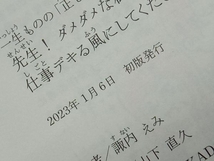 一生ものの「正
先生！ダメダメな
仕事デキる風にしてくだ
2023年1月6日 初版発行
者／諏内えみ
山下直久
KAD